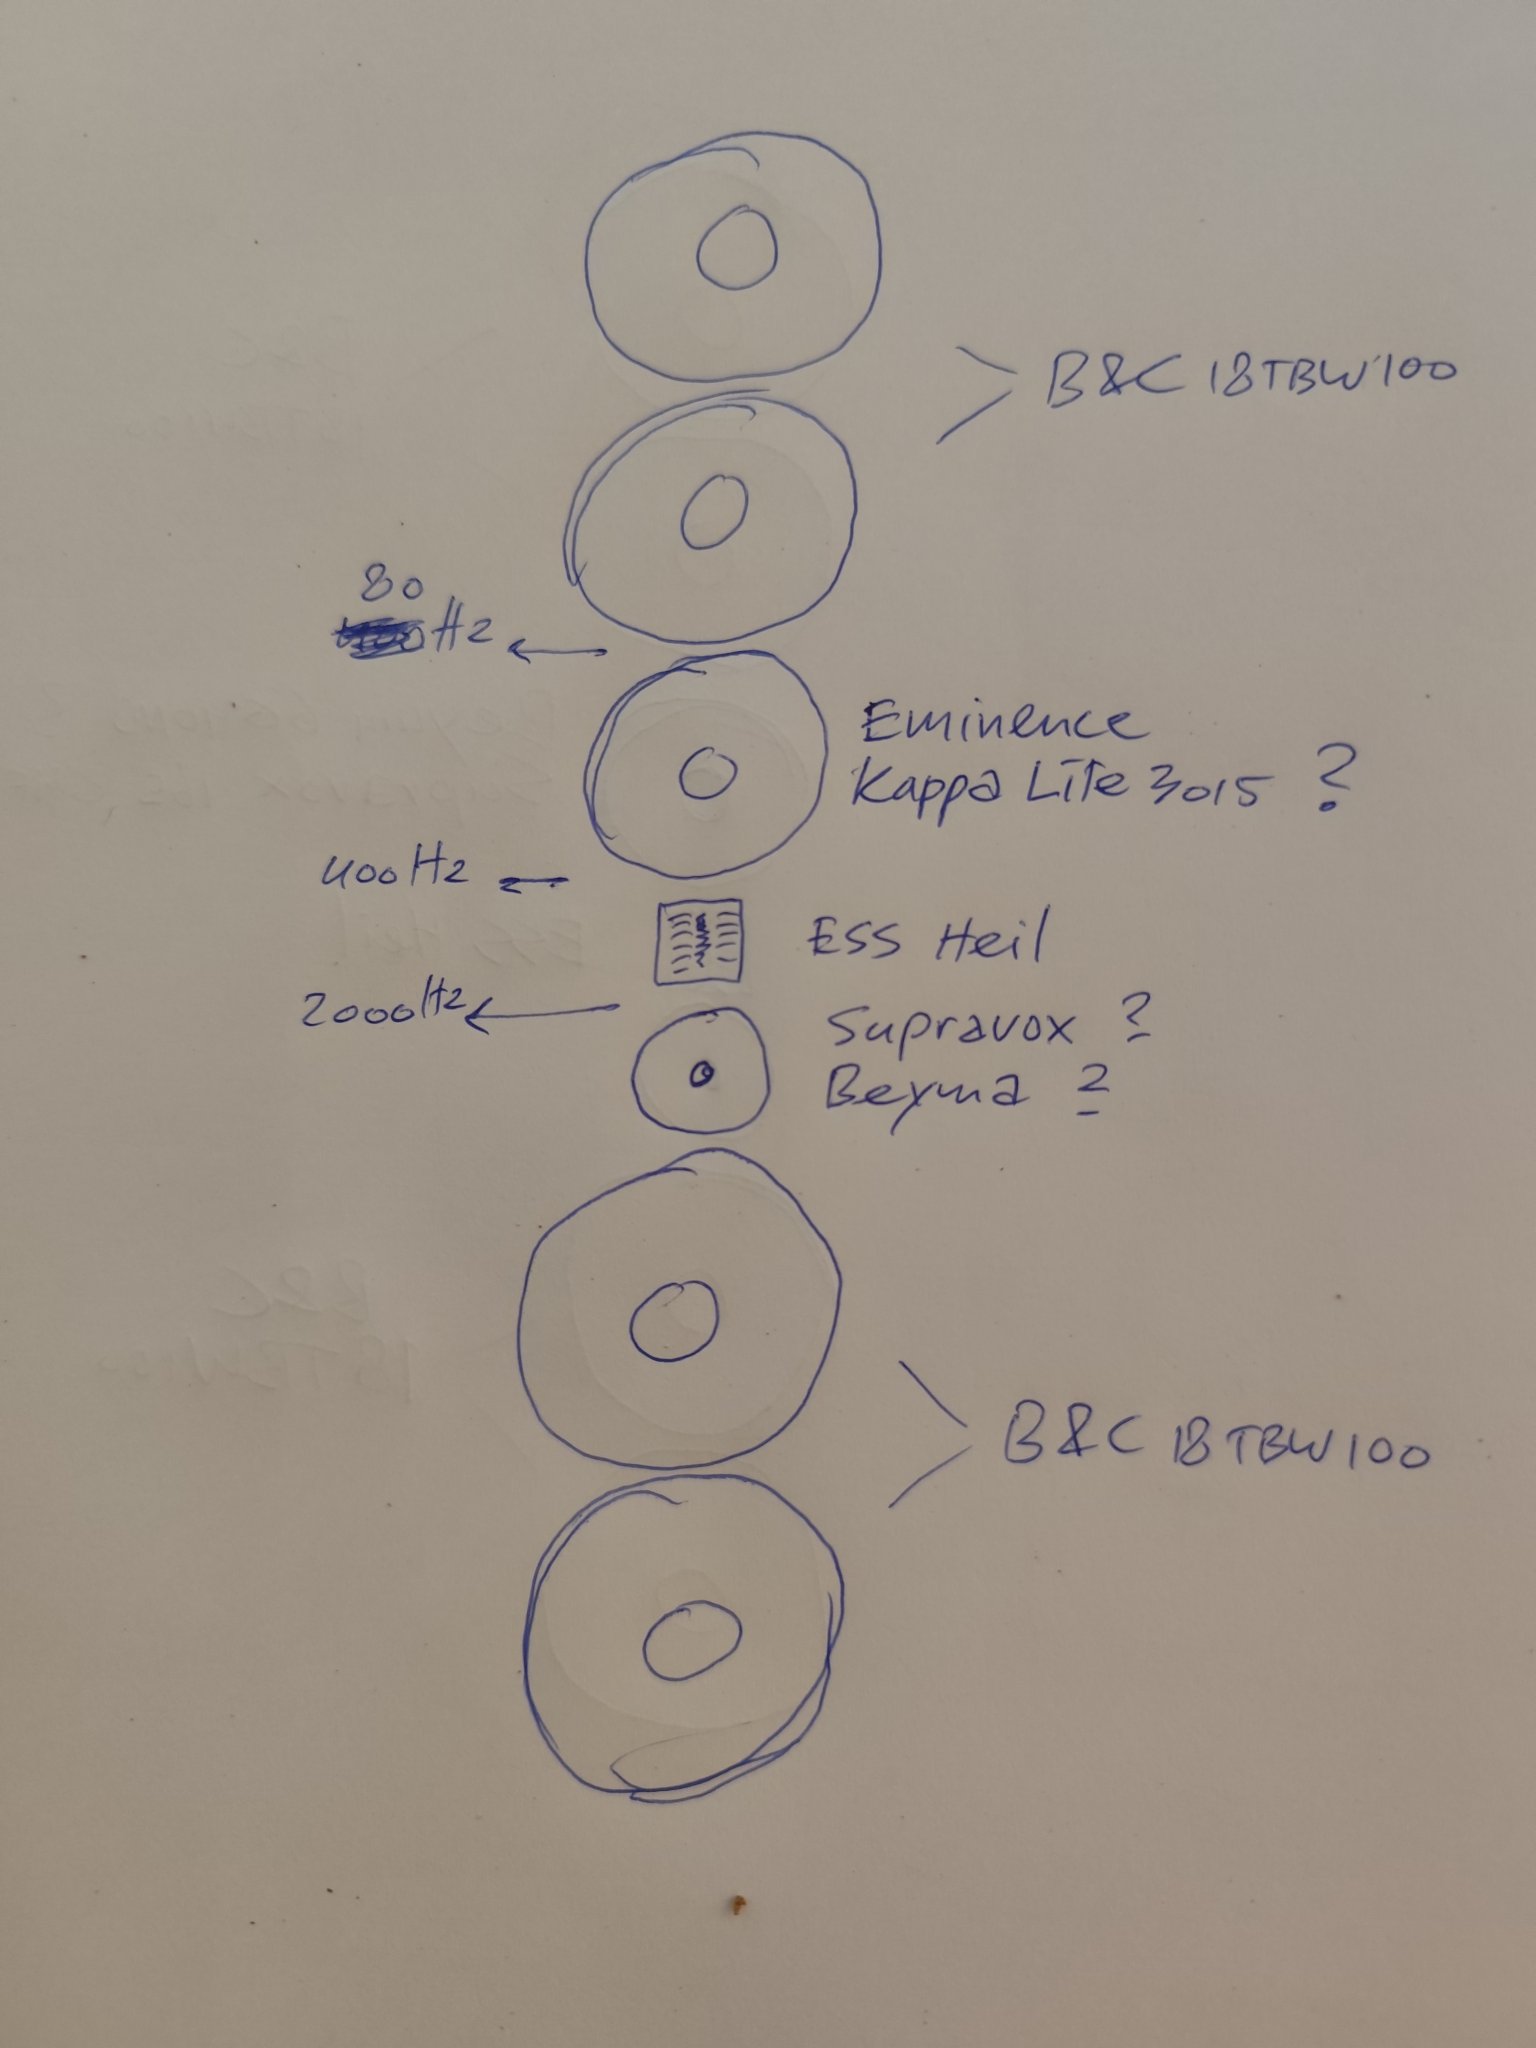 B&C 18TBW100
80
Hz
Eminence
Kappa Lite 3015 ?
400Hz
ESS Heil
2000Hz
Supravox ?
Beyma ?
B&C 18TBW100